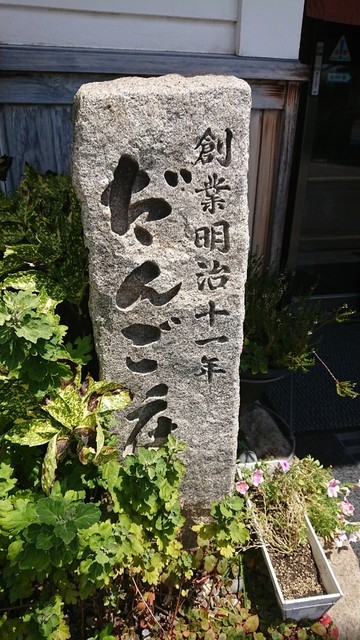 創業明治十一年
だんご庄